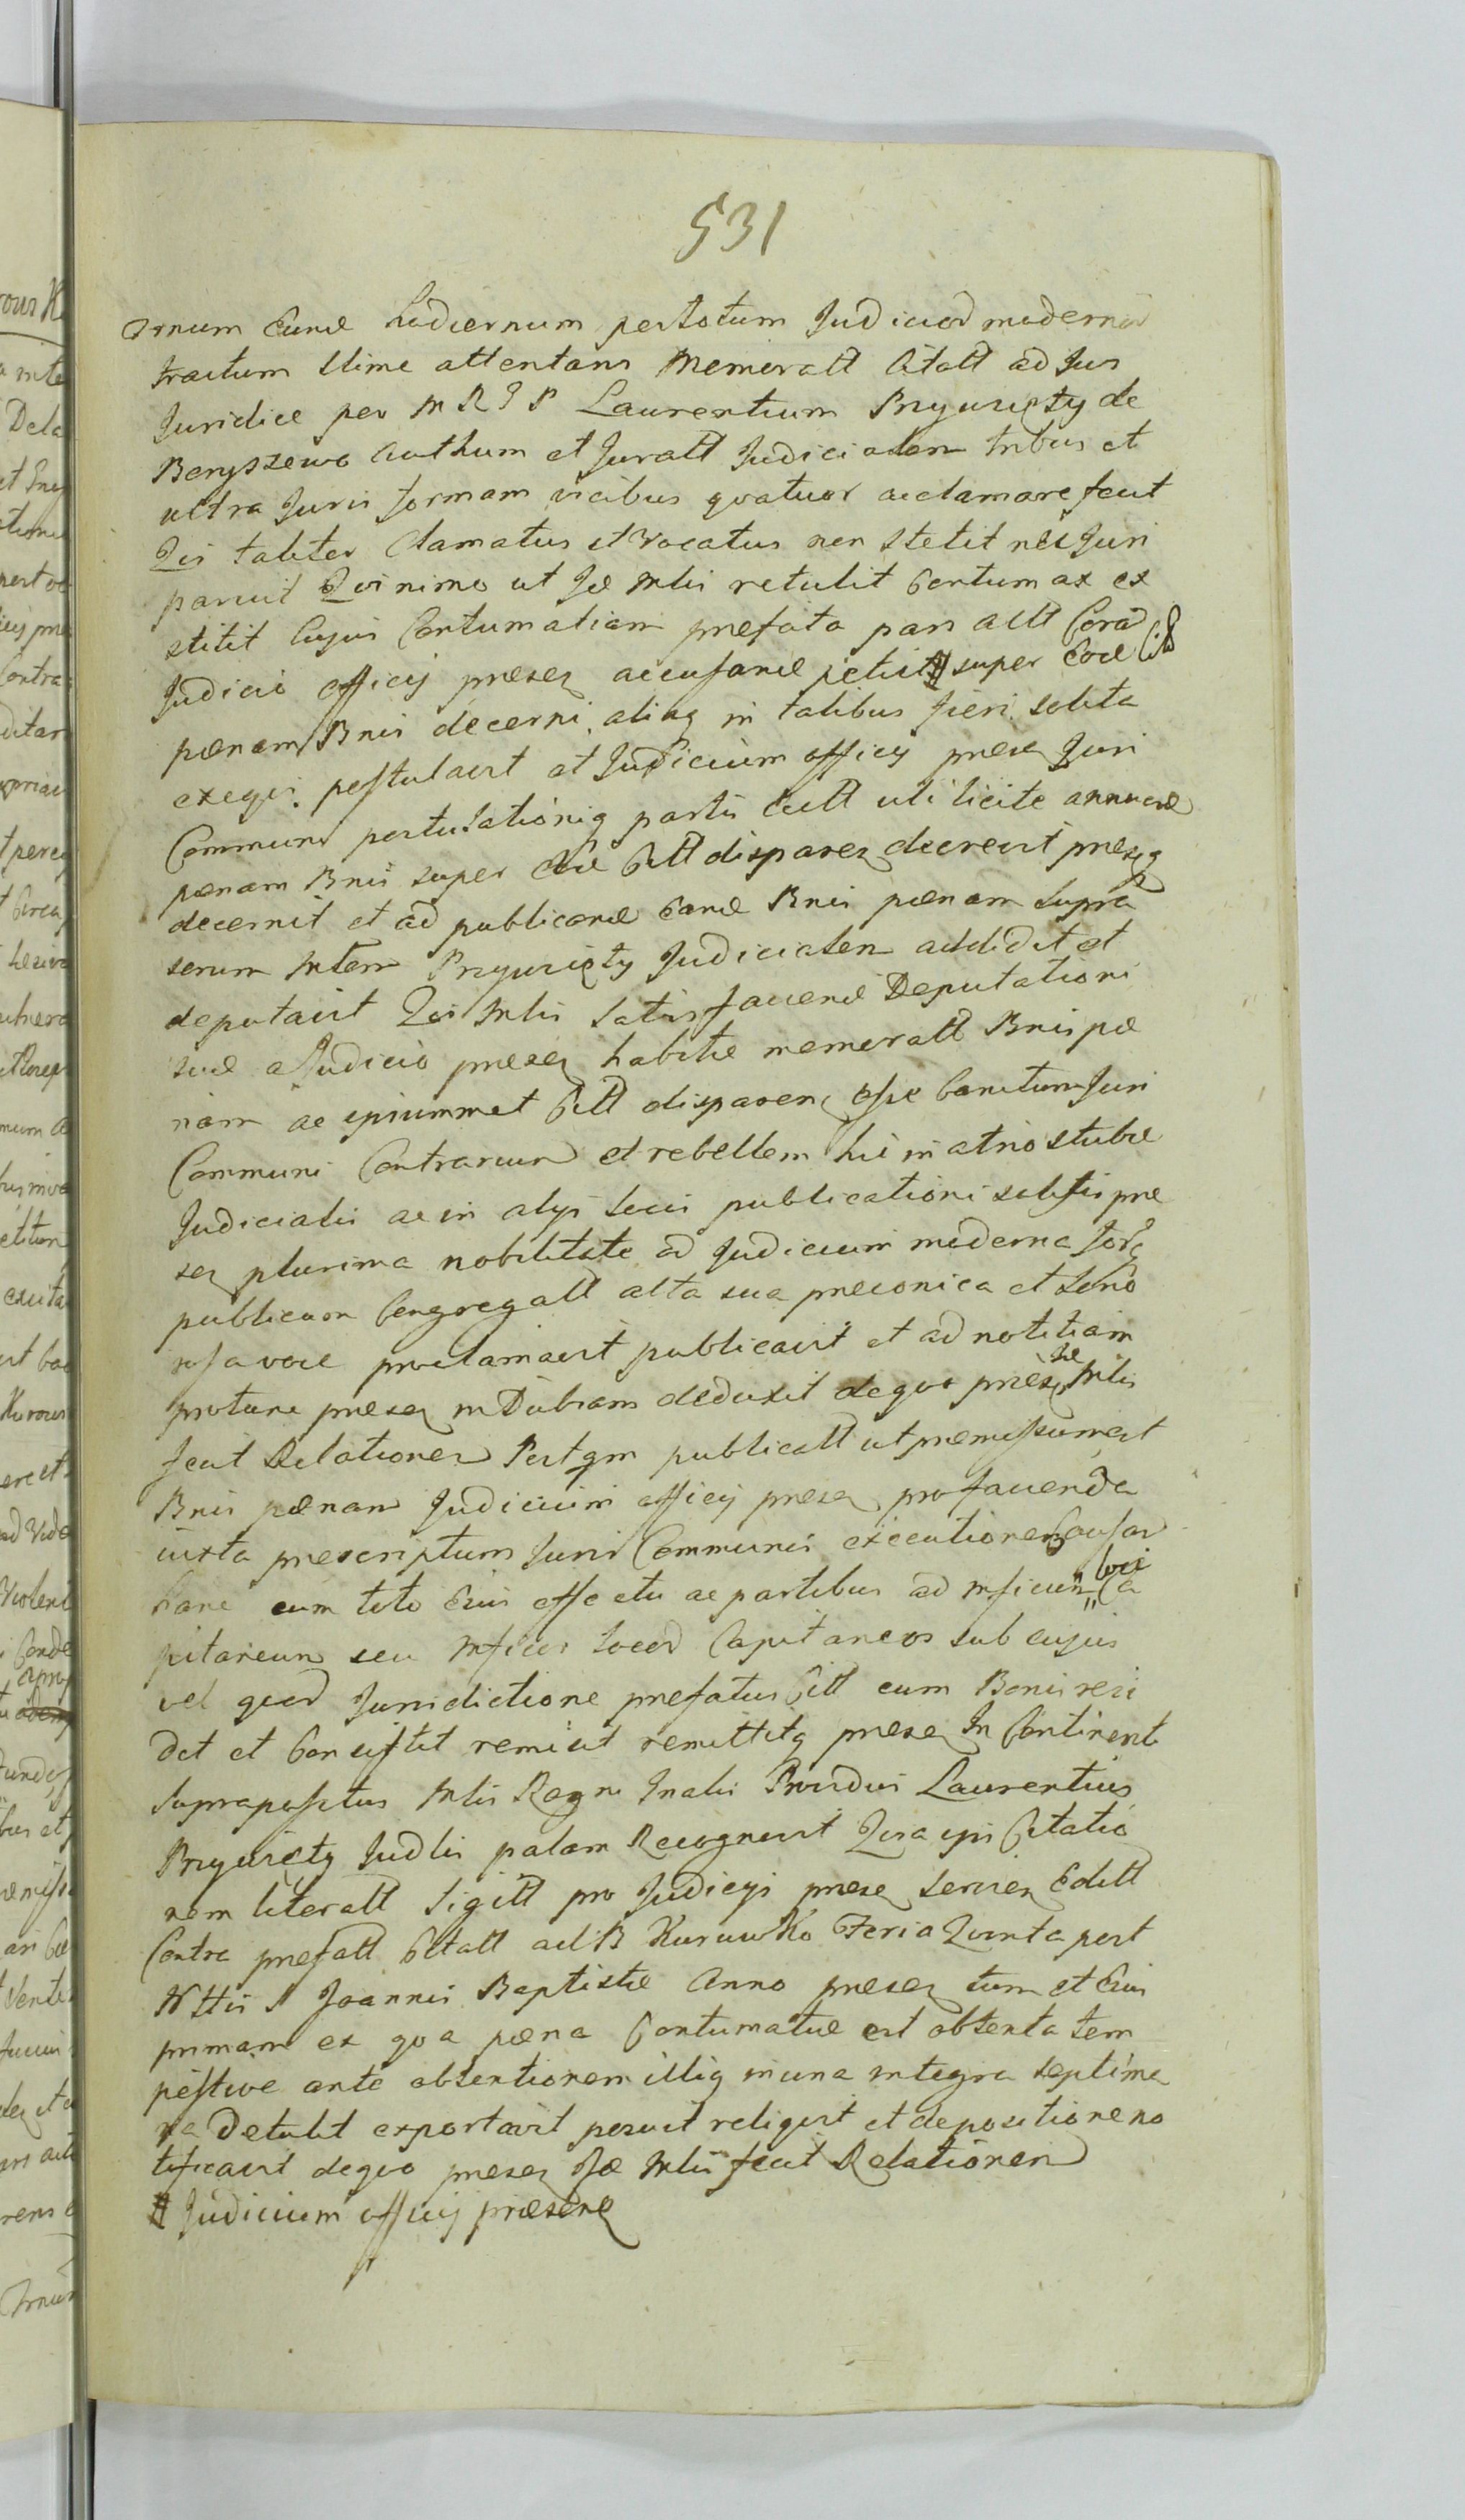 531
Trnum Eund hodiernum per totum Judiciord modernor
tractum Ltime attentans Memoratt Citatt ad Jus
Juridice per M R J P Laurentium Przywieczty de
Beryszewo Authum et Juratt Judicialem tribus et
ultra Juris formam vicibus quatuor acclamare fecit
Qui taliter Clamatus et Vocatus non stetit nec Juri
paruit Qui nimo ut Je Mlis retulit Contumax ex
stitit Cujus Contumatiam prefata pars actt Corã
Judicio officij presen accusand petiit super Eode Citt
pænam Bnis decerni aliaq in talibus fieri solita
exequi postulavit at Judicium officij presen Juri
Communi postulationiq partis Actt uti licite annuend
pænam Bnis super Eode Citt disparen decrevit presq
decernit et ad publicand Eand Bnis pænam supra
serum Mlem Przywieczty Judicialem addidit et
deputavit Qui Mlis Satisfaciend Deputationi
suæ a Judicio presen habitæ memoratt Bnis pæ
nam ac ipsummet Citt disparen esse banitum Juri
Communi Contrarium et rebellem hic in atrio stubæ
Judicialis ac in alijs locis publicationi solitis præ
sen plurima nobilitate ad Judicium moderna forq
publicum Congregatt alta sua preconica et sono
rosa voce proclamavit publicavit et ad notitiam
protunc presen in Dubiam deduxit de quo presen se Mlis
fecit Relationem Post qm publicatt ut premissum est
Bnis pænam Judicium officij presen pro facienda
iuxta prescriptum Juris Communis executione Causam
hanc cum toto Eius effectu ac partibus ad Mficum loci Ca
pitaneum seu Mficos locor Capitaneos sub cujus
vel quor Jurisdictione prefatus Citt cum Bonis resi
det et Consistit remisit remittitq presen In Continenti
Suprapositus Mlis Regni Gnalis Providus Laurentius
Przywieczty Judlis palam Recognovit Quia ipse Citatio
nem literatt Sigitt pro Judicijs presen servien Editt
Contra prefatt Citatt ad B Kurowko Feria Quinta post
Nttis S Joannis Baptistæ Anno presen tum et Eius
primam ex qua pæna Contumatiæ est obtenta tem
pestive ante obtentionem illiq in una integra septima
na Detulit exportavit posuit reliquit et depositione no
tificavit de quo presen Je Mlis fecit Relationem
Judicium officij præsens